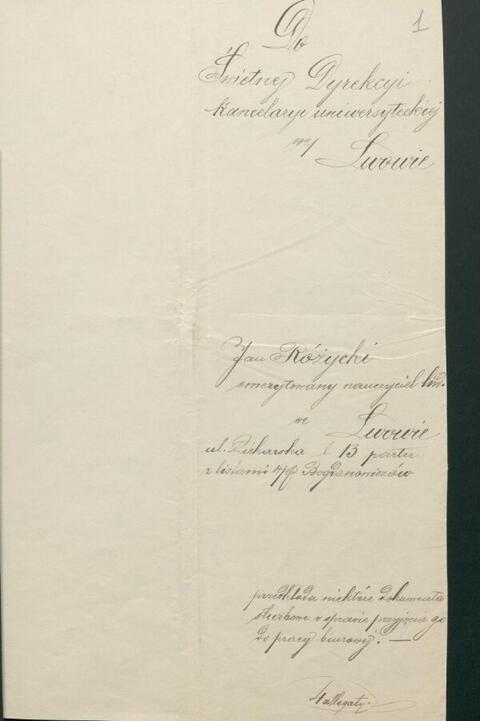 1
Do
Świetnej Dyrekcyi
kancelaryi uniwersyteckiej
we
Lwowie
Jan Różycki
emerytowany nauczyciel lud.
we
Lwowie
ul. Piekarska l 13 parter
z listami Bogdanowiczów
przedkłada niektóre dokumenta
służbowe w sprawie przyjęcia go
do pracy biurowej. —
4 allegaty.